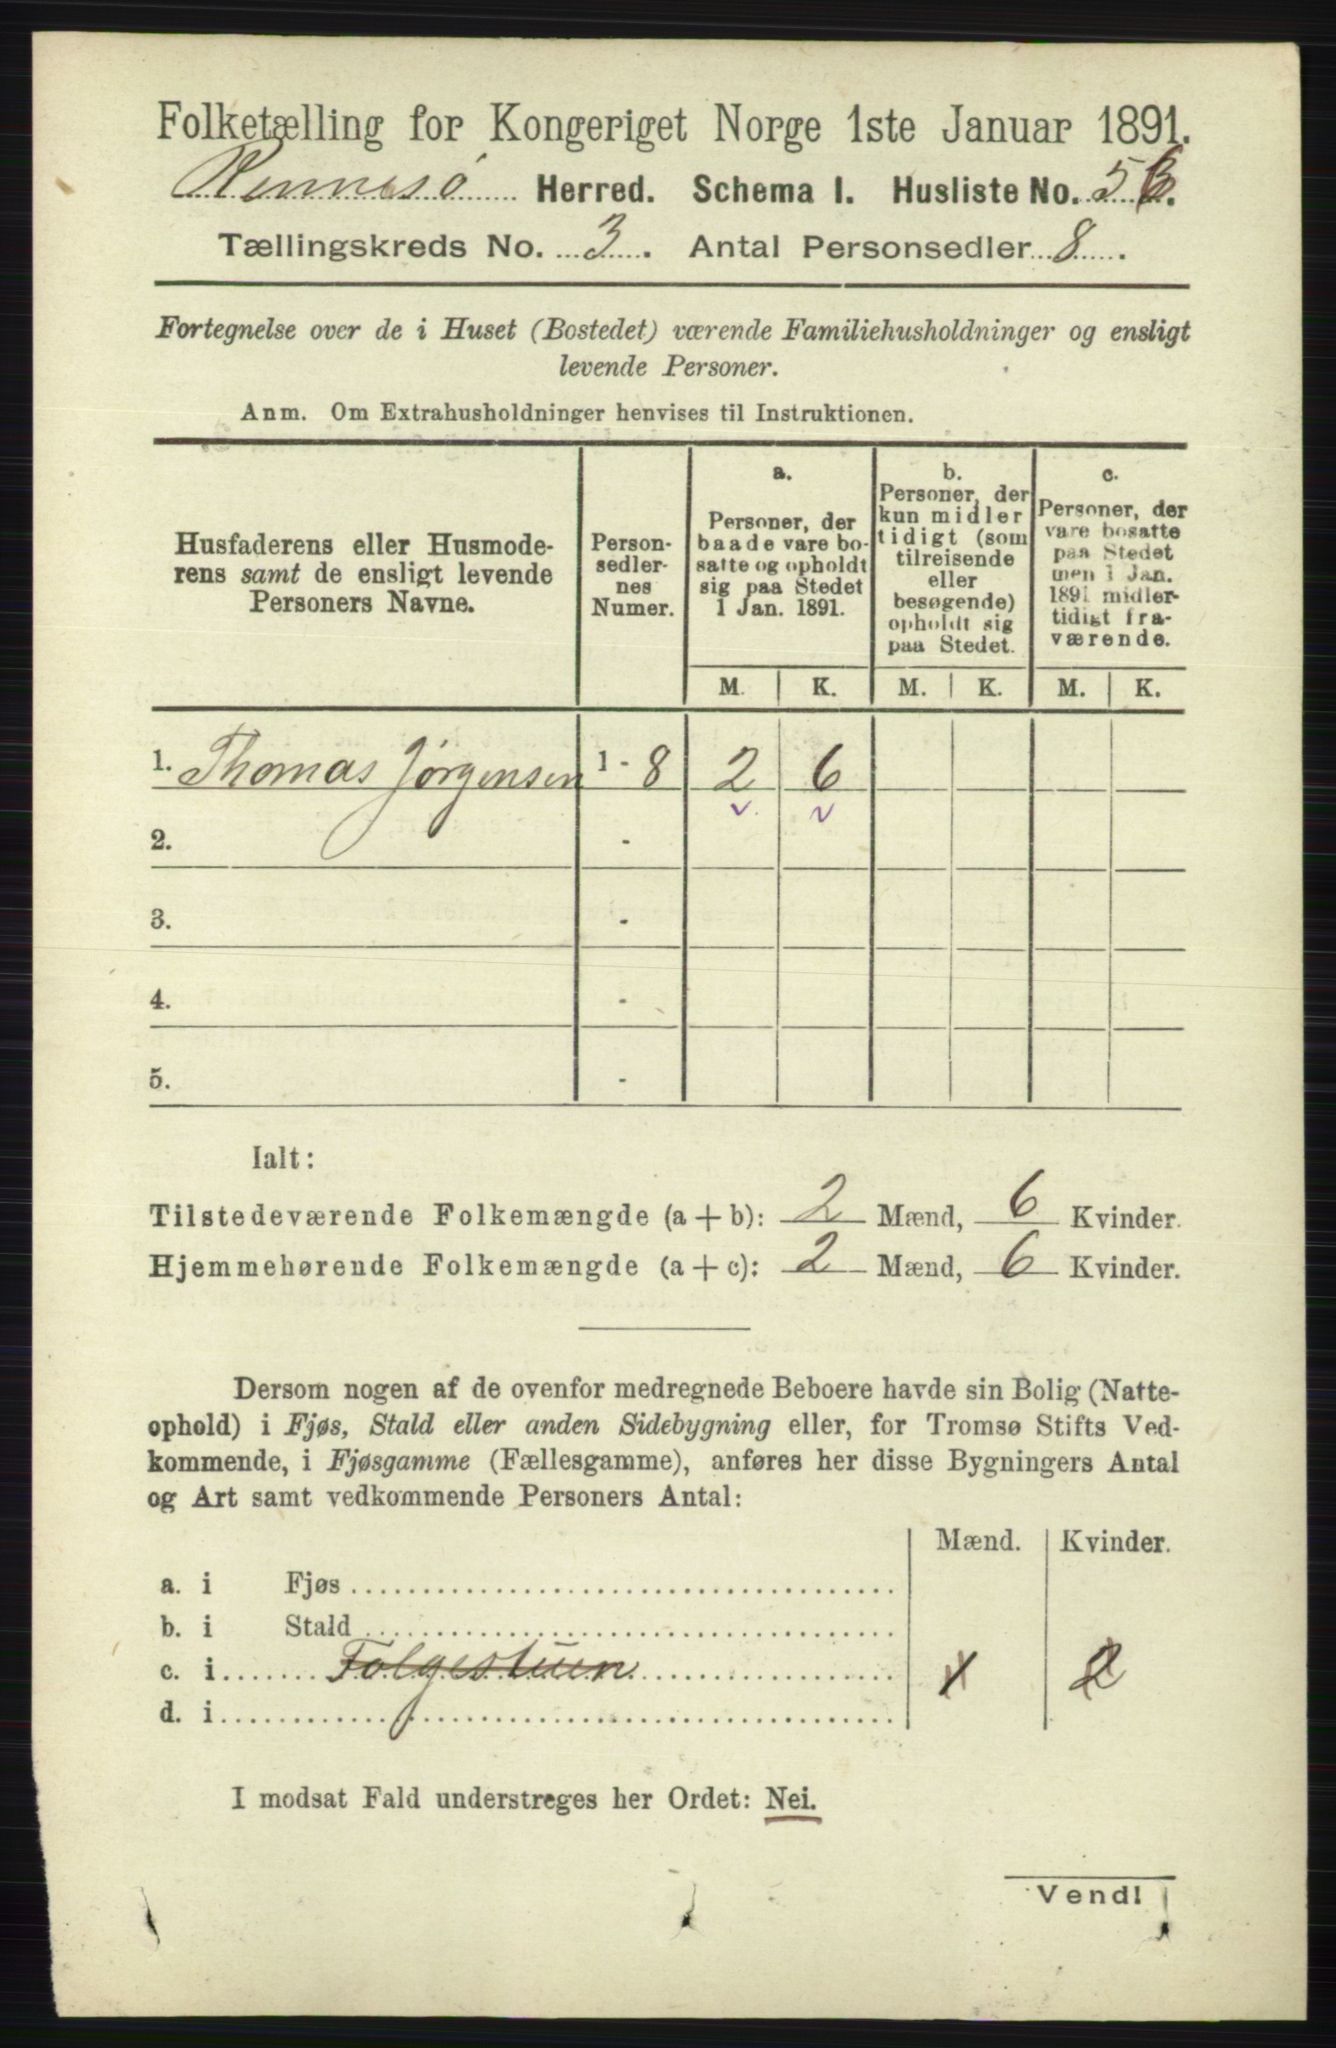 Folketælling for Kongeriget Norge 1ste Januar 1891.
Rennesö Herred. Schema I. Husliste No. 56.
Tællingskreds No. 3. Antal Personsedler 8.
Fortegnelse over de i Huset (Bostedet) værende Familiehusholdninger og ensligt
levende Personer.
Anm. Om Extrahusholdninger henvises til Instruktionen.
Husfaderens eller Husmode-
rens samt de ensligt levende
Personers Navne.
Person-
sedler-
nes
Numer.
a.
Personer, der
baade vare bo-
satte og opholdt
sig paa Stedet
1 Jan. 1891.
b.
Personer, der
kun midler
tidigt (som
tilreisende
eller
besøgende)
opholdt sig
paa Stedet.
c.
Personer, der
vare bosatte
paa Stedet
men 1 Jan.
1891 midler-
tidigt fra-
værende.
M. K. M. K. M. K.
1. Thomas Jörgensen 1 - 8 2 6
2. -
3. -
4. -
5. -
Ialt:
Tilstedeværende Folkemængde (a + b): 2 Mænd, 6 Kvinder.
Hjemmehørende Folkemængde (a + c): 2 Mænd, 6 Kvinder.
Dersom nogen af de ovenfor medregnede Beboere havde sin Bolig (Natte-
ophold) i Fjøs, Stald eller anden Sidebygning eller, for Tromsø Stifts Ved-
kommende, i Fjøsgamme (Fællesgamme), anføres her disse Bygningers Antal
og Art samt vedkommende Personers Antal:
Mænd. Kvinder.
a. i Fjøs
b. i Stald
c. i Folgestuen 1 2
d. i
I modsat Fald understreges her Ordet: Nei.
Vend!